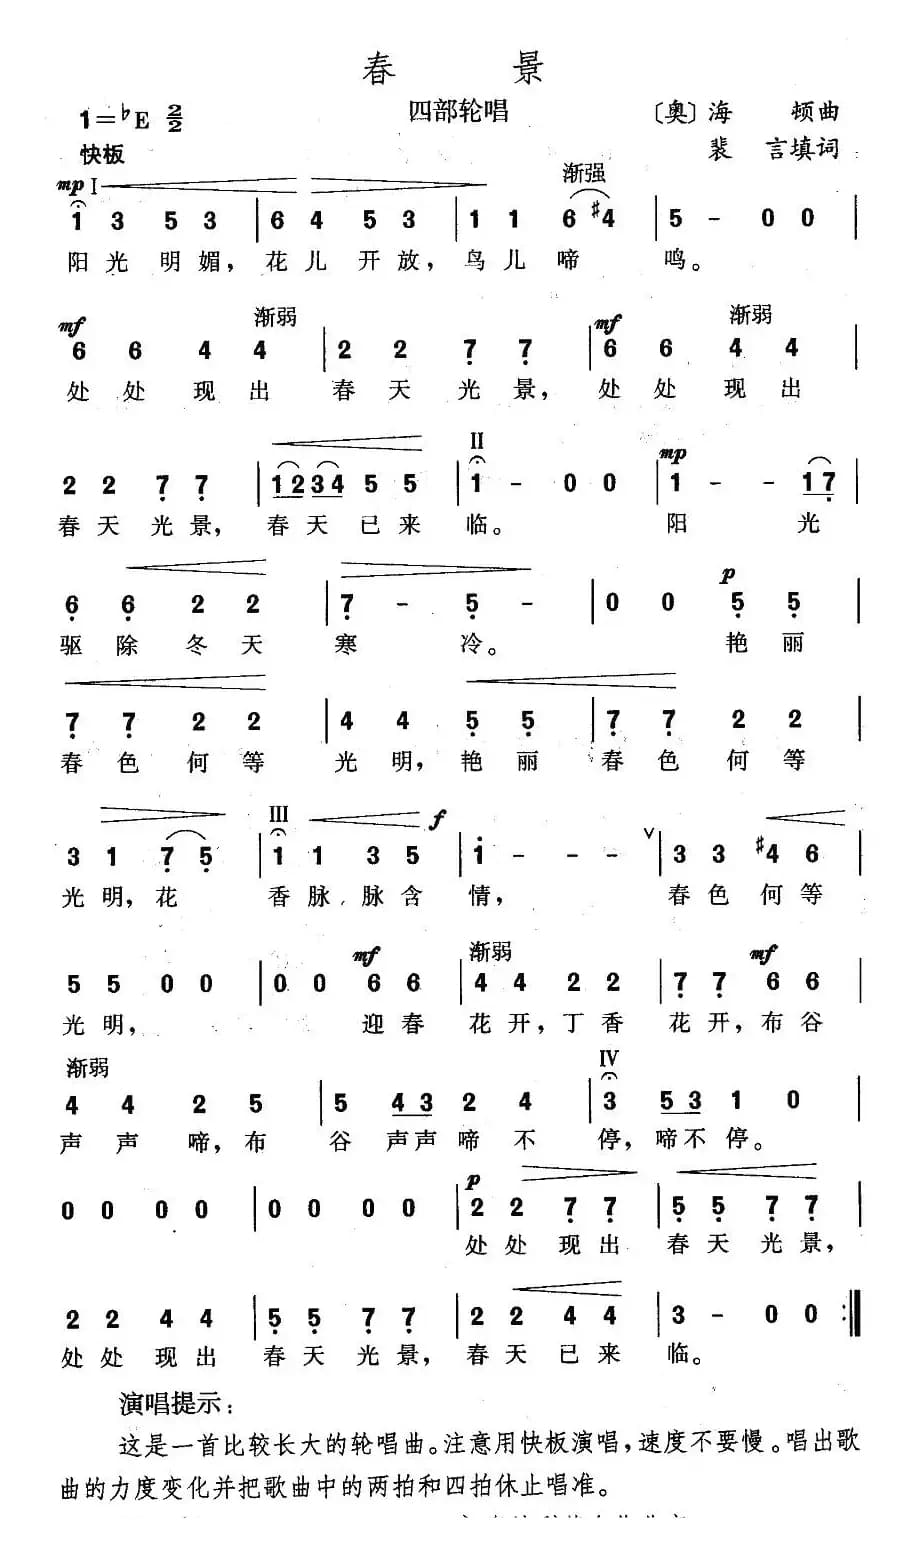 春 景
四部轮唱
1=♭E 2/2
〔奥〕海 顿曲
快板
裴 言填词
渐强
mp I
1 3 5 3 | 6 4 5 3 | 1 1 6 #4 | 5 - 0 0 |
阳光明媚，花儿开放，鸟儿啼 鸣。
mf 渐弱 mf 渐弱
6 6 4 4 | 2 2 7 7 | 6 6 4 4 |
处处现出 春天光景，处处现出
II mp
2 2 7 7 | 1 2 3 4 5 5 | 1 - 0 0 | 1 - - 1 7 |
春天光景，春天已来 临。 阳 光
p
6 6 2 2 | 7 - 5 - | 0 0 5 5 |
驱除冬天 寒 冷。 艳丽
7 7 2 2 | 4 4 5 5 | 7 7 2 2 |
春色何等 光明，艳丽 春色何等
III f
3 1 7 5 | 1 1 3 5 | 1 - - - ∨ | 3 3 #4 6 |
光明，花 香脉脉含 情， 春色何等
mf 渐弱 mf
5 5 0 0 | 0 0 6 6 | 4 4 2 2 | 7 7 6 6 |
光明， 迎春 花开，丁香 花开，布谷
渐弱 IV
4 4 2 5 | 5 4 3 2 4 | 3 5 3 1 0 |
声声啼，布 谷声声啼不 停，啼不停。
p
0 0 0 0 | 0 0 0 0 | 2 2 7 7 | 5 5 7 7 |
处处现出 春天光景，
2 2 4 4 | 5 5 7 7 | 2 2 4 4 | 3 - 0 0 :‖
处处现出 春天光景，春天已来 临。
演唱提示：
这是一首比较长大的轮唱曲。注意用快板演唱，速度不要慢。唱出歌
曲的力度变化并把歌曲中的两拍和四拍休止唱准。